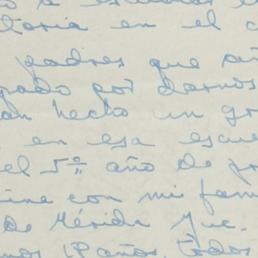 a en el c
padres que añ
grado por darnos
an hecho un gr
en esa escue
el 5º año de pr
ine con mi fam
de Mérida Yuc.
años, todos